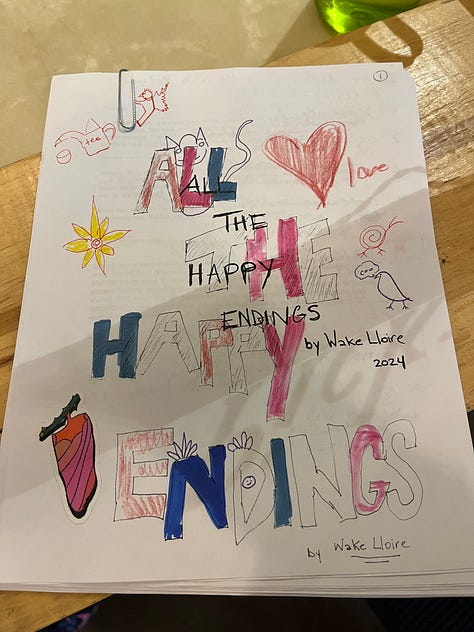 ①
tea
ALL
love
ALL
THE
THE
HAPPY
ENDINGS
by Wake Lloire
2024
HAPPY
ENDINGS
by Wake Lloire